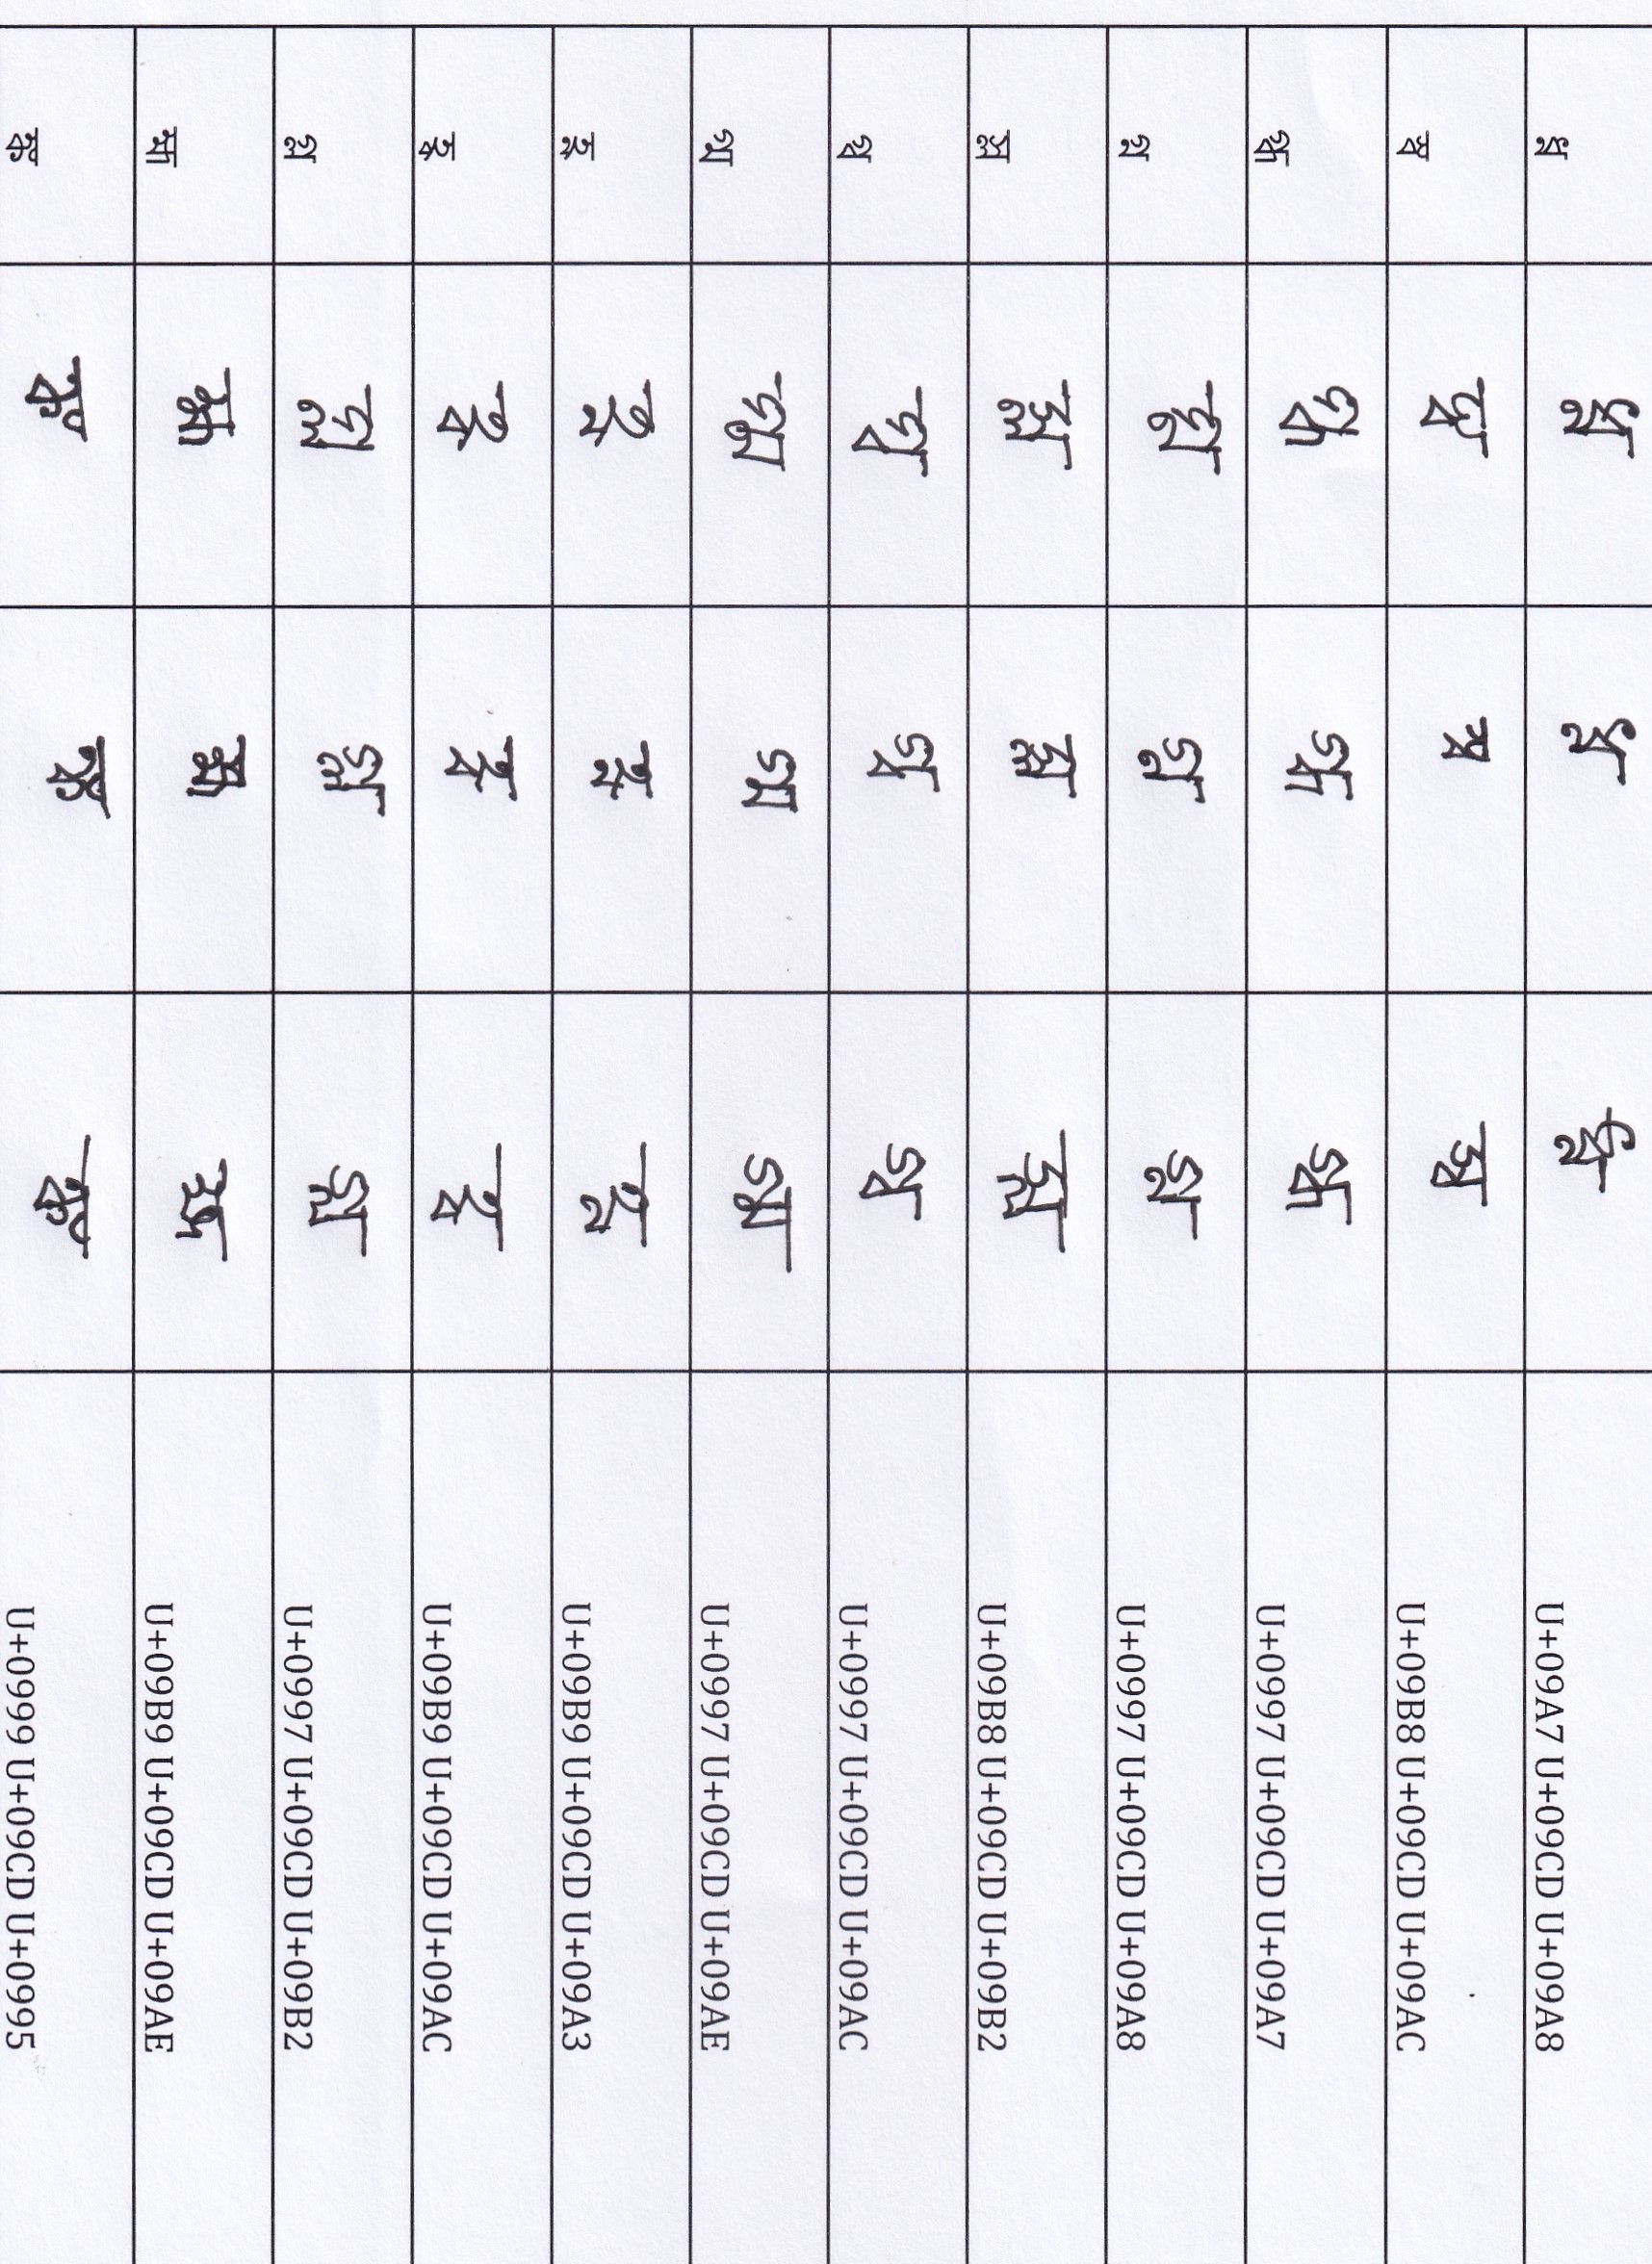 ধ্ন ধ্ন ধ্ন ধ্ন U+09A7 U+09CD U+09A8
স্ব স্ব স্ব স্ব U+09B8 U+09CD U+09AC
গ্ধ গ্ধ গ্ধ গ্ধ U+0997 U+09CD U+09A7
গ্ন গ্ন গ্ন গ্ন U+0997 U+09CD U+09A8
স্ল স্ল স্ল স্ল U+09B8 U+09CD U+09B2
গ্ব গ্ব গ্ব গ্ব U+0997 U+09CD U+09AC
গ্ম গ্ম গ্ম গ্ম U+0997 U+09CD U+09AE
হ্ণ হ্ণ হ্ণ হ্ণ U+09B9 U+09CD U+09A3
হ্ব হ্ব হ্ব হ্ব U+09B9 U+09CD U+09AC
গ্ল গ্ল গ্ল গ্ল U+0997 U+09CD U+09B2
হ্ম হ্ম হ্ম হ্ম U+09B9 U+09CD U+09AE
ঙ্ক ঙ্ক ঙ্ক ঙ্ক U+0999 U+09CD U+0995